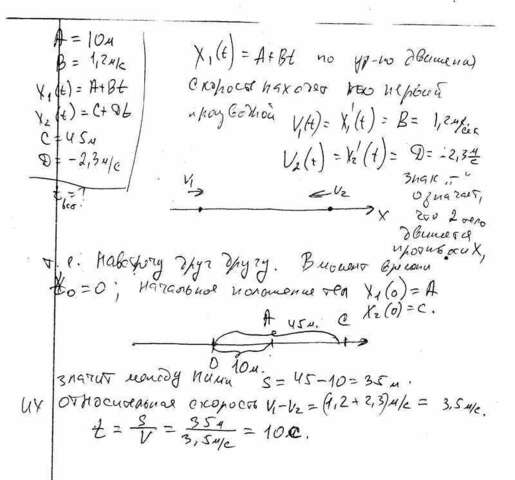 A = 10м
B = 1,2 м/с
X₁(t) = A+Bt
X₂(t) = C+Dt
C = 45м
D = -2,3 м/с
tвст = ?
X₁(t) = A+Bt по ур-ю движения
скорость находят как первый
производной V₁(t) = X₁'(t) = B = 1,2 м/сек
V₂(t) = X₂'(t) = D = -2,3 м/с
знак „-"
означает,
что 2 тело
движется
против оси X,
V₁ V₂
X
т.е. навстречу друг другу. В момент времени
t₀ = 0; начальное положение тел X₁(0) = A
X₂(0) = C.
A 45м. C
O 10м.
значит между ними S = 45-10 = 35м.
их относительная скорость V₁-V₂ = (1,2+2,3) м/с = 3,5 м/с.
t = S/V = 35м/3,5м/с = 10с.